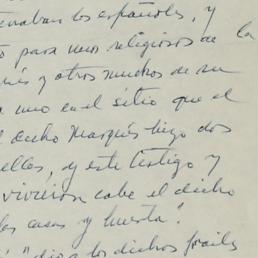 los españoles, y
para unos religiosos de la
y otros muchos de su
uno en el sitio que el
dicho Marqués hizo dos
ellas, y este testigo y
vivieron cabe el dicho
las casas y huerta".
"dio a los dichos frailes